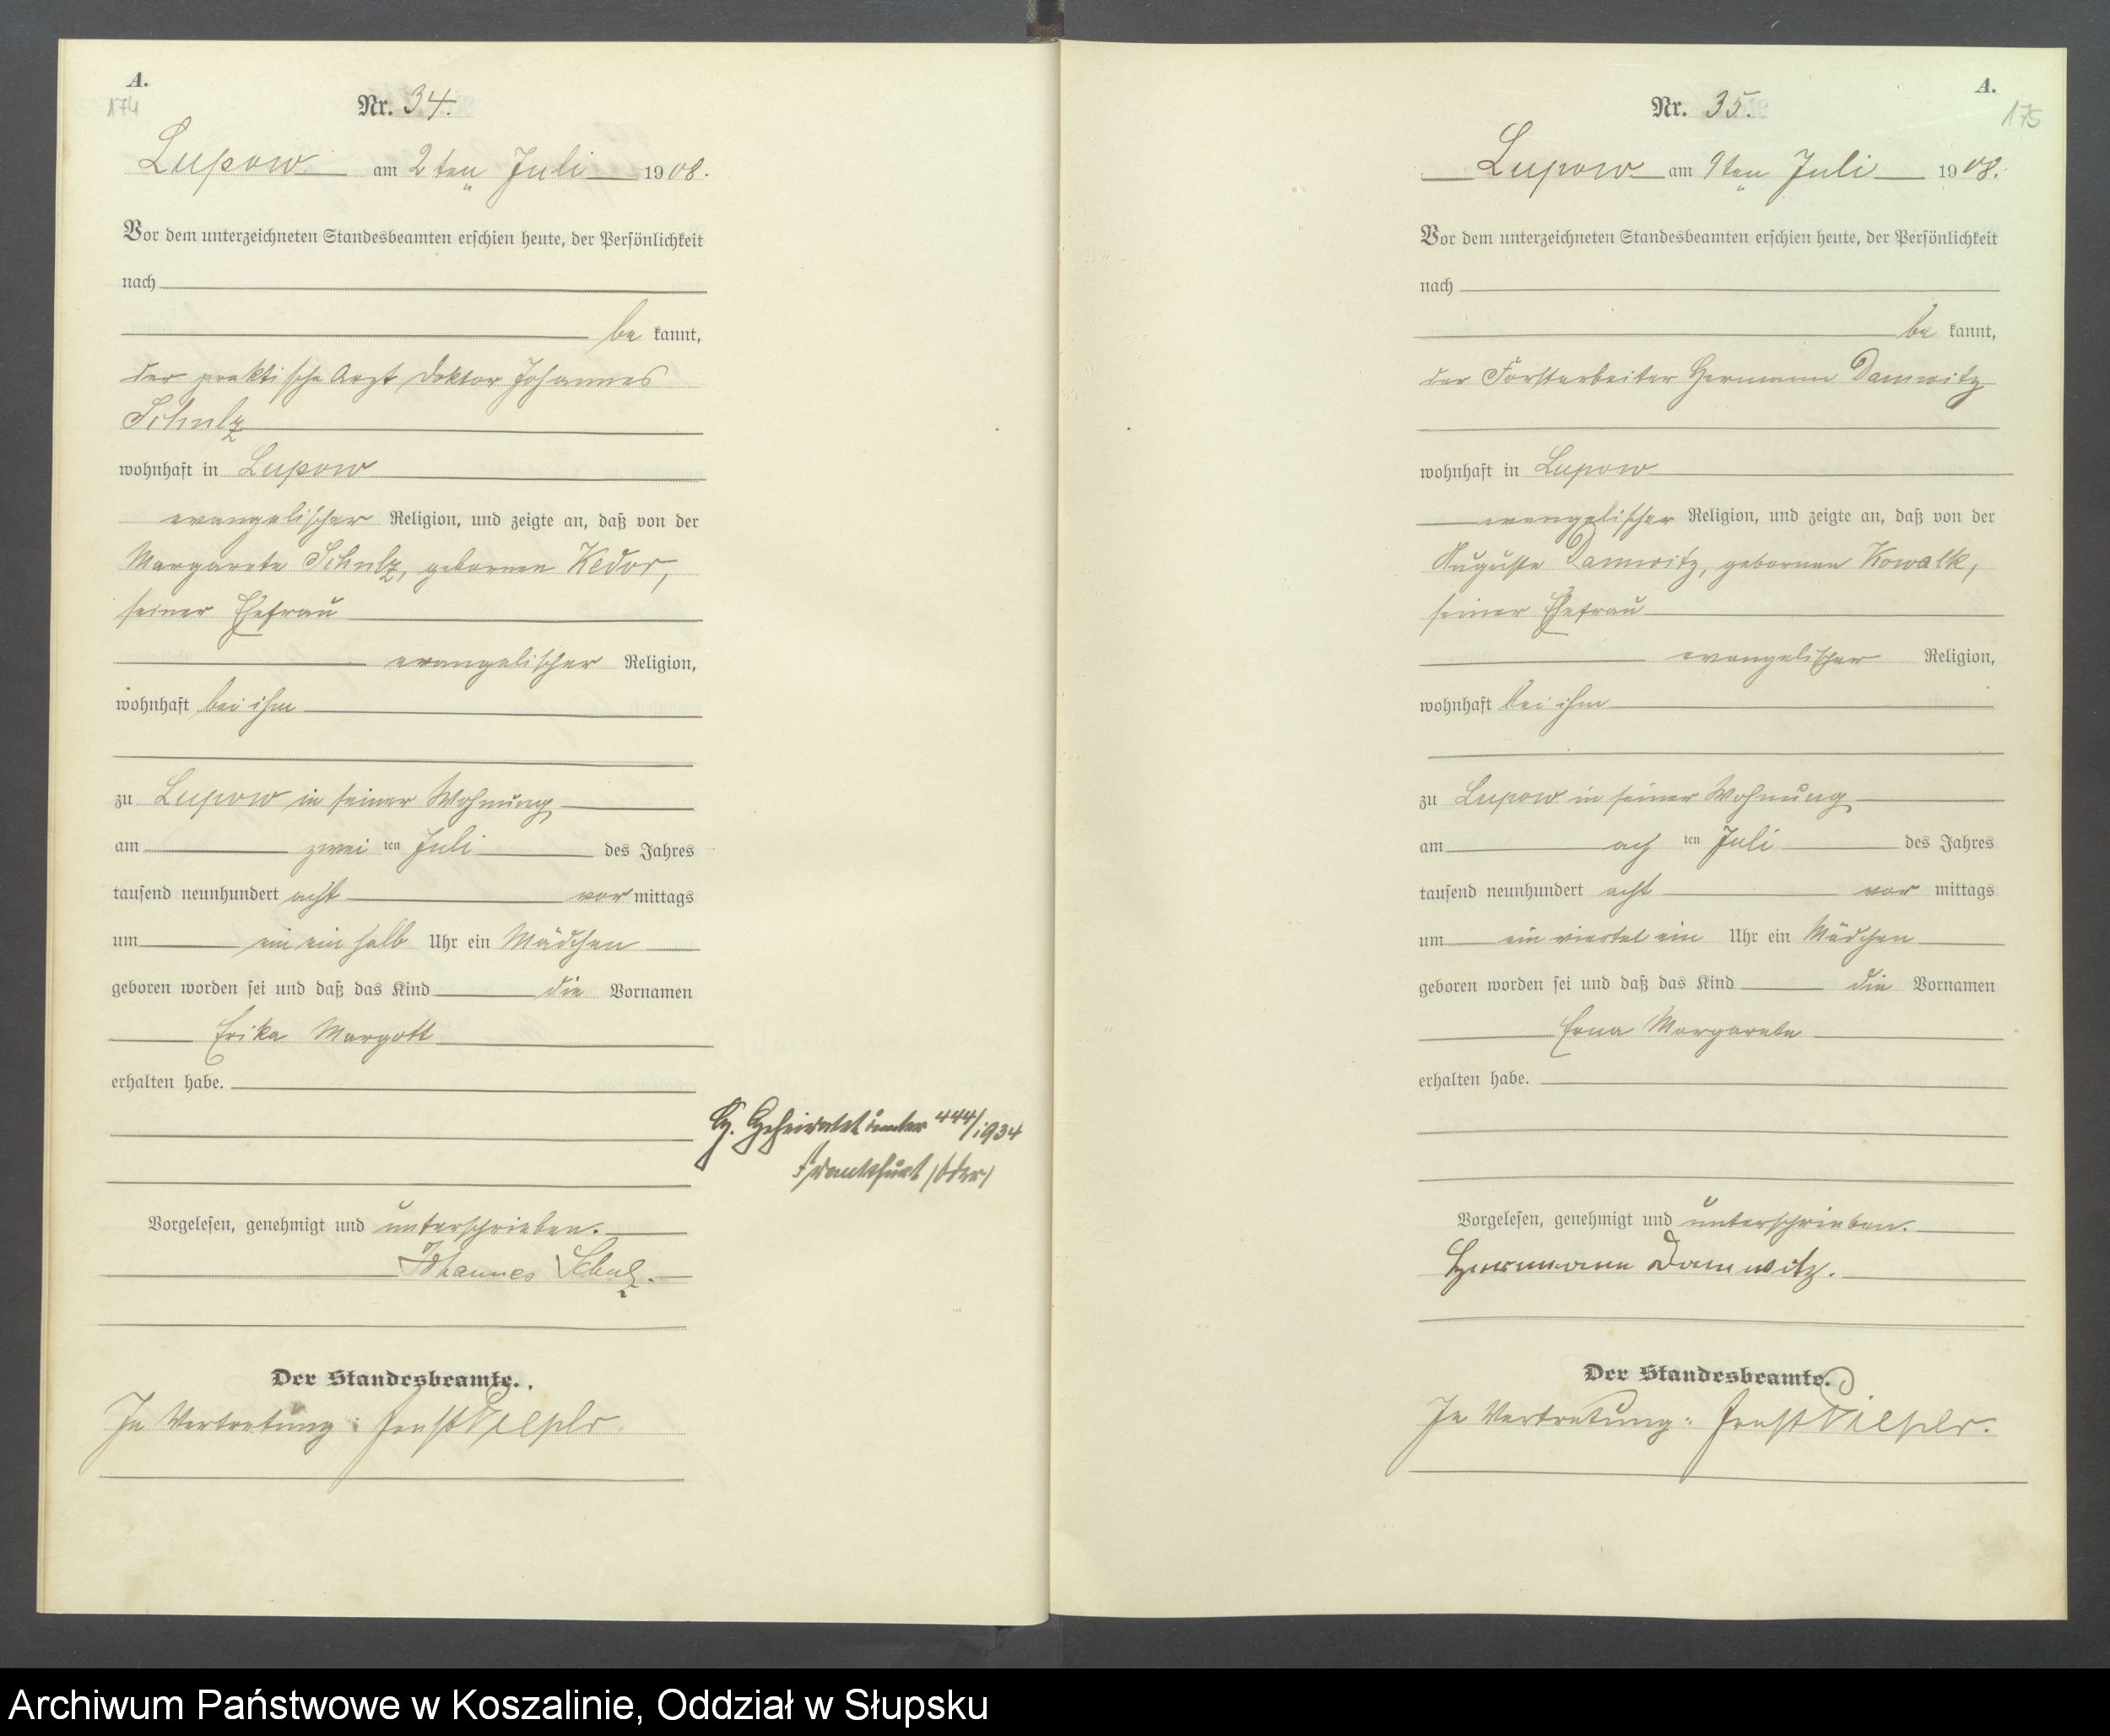 A.
174
Nr. 34.
Lupow am 2ten Juli 1908.
Vor dem unterzeichneten Standesbeamten erschien heute, der Persönlichkeit
nach
be kannt,
der praktische Arzt Doktor Johannes
Schulz
wohnhaft in Lupow
evangelischer Religion, und zeigte an, daß von der
Margarete Schulz, geborenen Kedor,
seiner Ehefrau
evangelischer Religion,
wohnhaft bei ihm
zu Lupow in seiner Wohnung
am zwei ten Juli des Jahres
tausend neunhundert acht vor mittags
um ein ein halb Uhr ein Mädchen
geboren worden sei und daß das Kind die Vornamen
Erika Margott
erhalten habe.
G. Geheiratet unter 444/1934
Frankfurt (Oder)
Vorgelesen, genehmigt und unterschrieben.
Johannes Schulz.
Der Standesbeamte.
In Vertretung: Ernst
A.
175
Nr. 35.
Lupow am 9ten Juli 1908.
Vor dem unterzeichneten Standesbeamten erschien heute, der Persönlichkeit
nach
be kannt,
der Forstarbeiter Hermann Damwitz
wohnhaft in Lupow
evangelischer Religion, und zeigte an, daß von der
Auguste Damwitz, geborenen Kowalk,
seiner Ehefrau
evangelischer Religion,
wohnhaft bei ihm
zu Lupow in seiner Wohnung
am ach ten Juli des Jahres
tausend neunhundert acht vor mittags
um ein viertel ein Uhr ein Mädchen
geboren worden sei und daß das Kind die Vornamen
Erna Margarete
erhalten habe.
Vorgelesen, genehmigt und unterschrieben.
Hermann Damwitz.
Der Standesbeamte.
In Vertretung: Ernst
Archiwum Państwowe w Koszalinie, Oddział w Słupsku